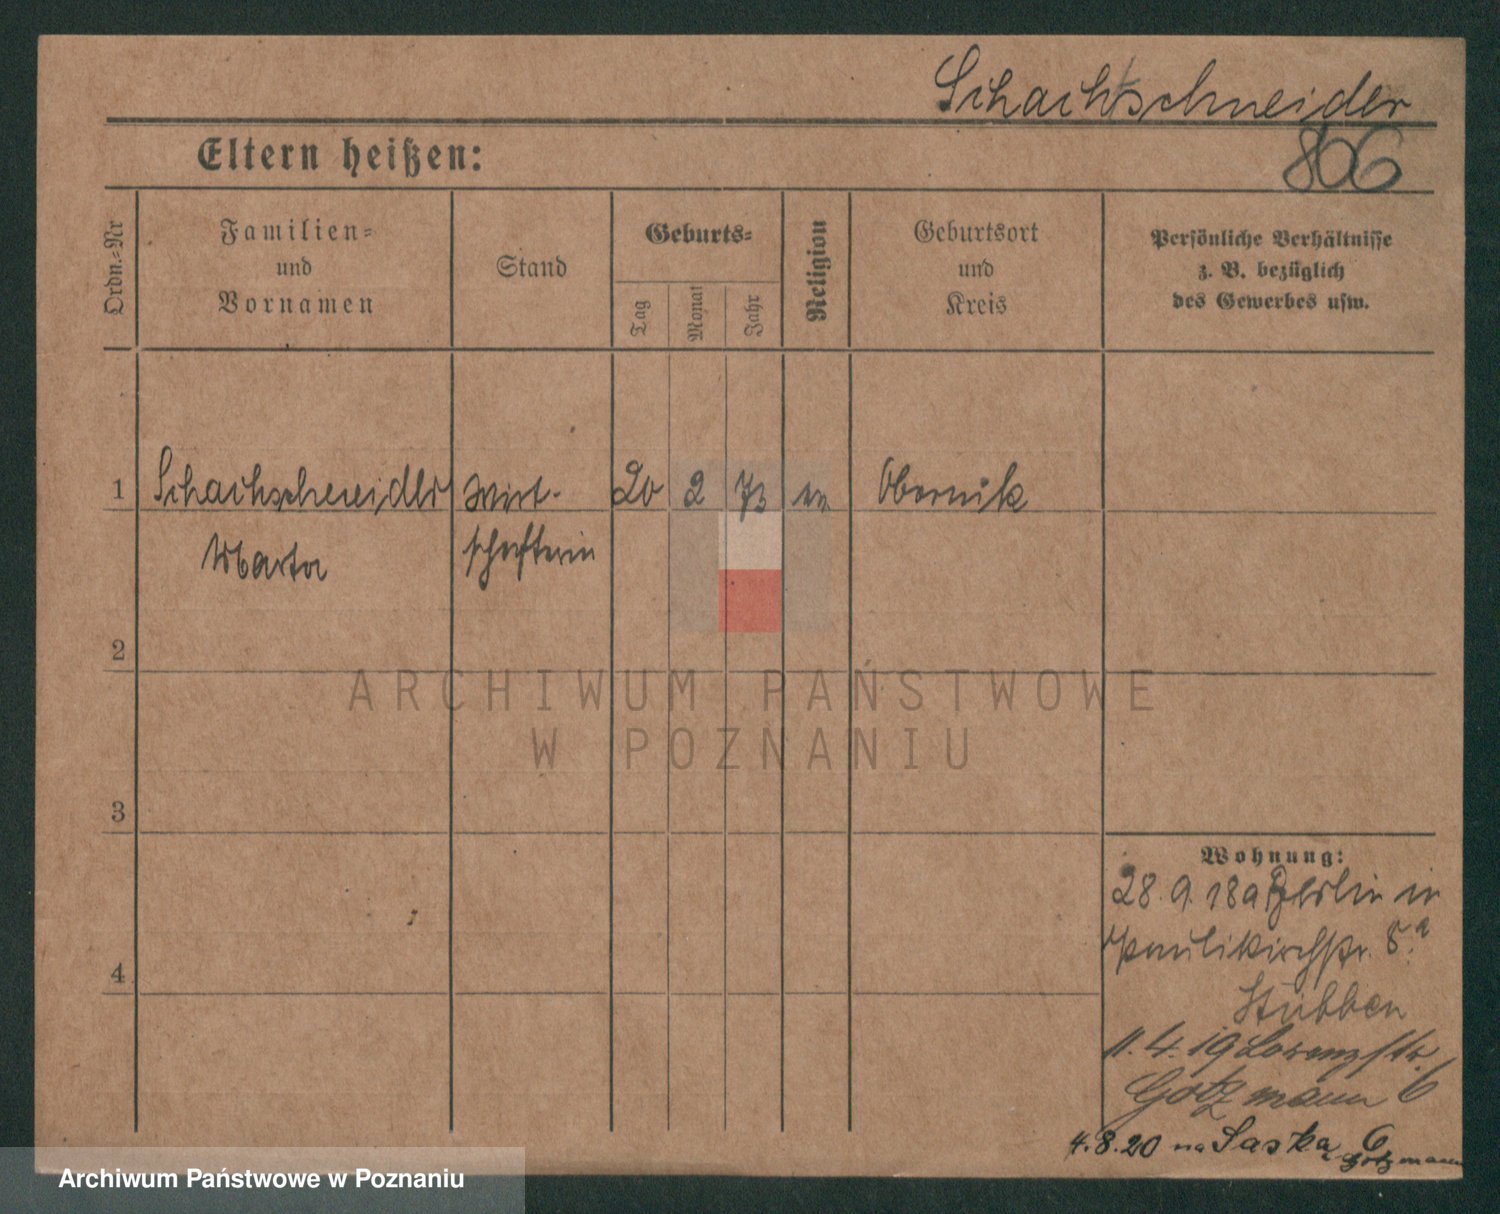 Schachtschneider
Eltern heißen:
806
Ordn.-Nr
Familien-
und
Vornamen
Stand
Geburts-
Tag
Monat
Jahr
Religion
Geburtsort
und
Kreis
Persönliche Verhältnisse
z. B. bezüglich
des Gewerbes usw.
1 Schachschneider Wirt- 20 2 73 ev. Obornik
Marta schafterin
2
ARCHIWUM PAŃSTWOWE
W POZNANIU
3
4
Wohnung:
28.9.18 a Berlin in
Paulikirchstr. 5.a
Stübben
11.4.19 Lorenzstr.
Gotzmann 6
4.8.20 na Saska 6
Gotzmann
Archiwum Państwowe w Poznaniu